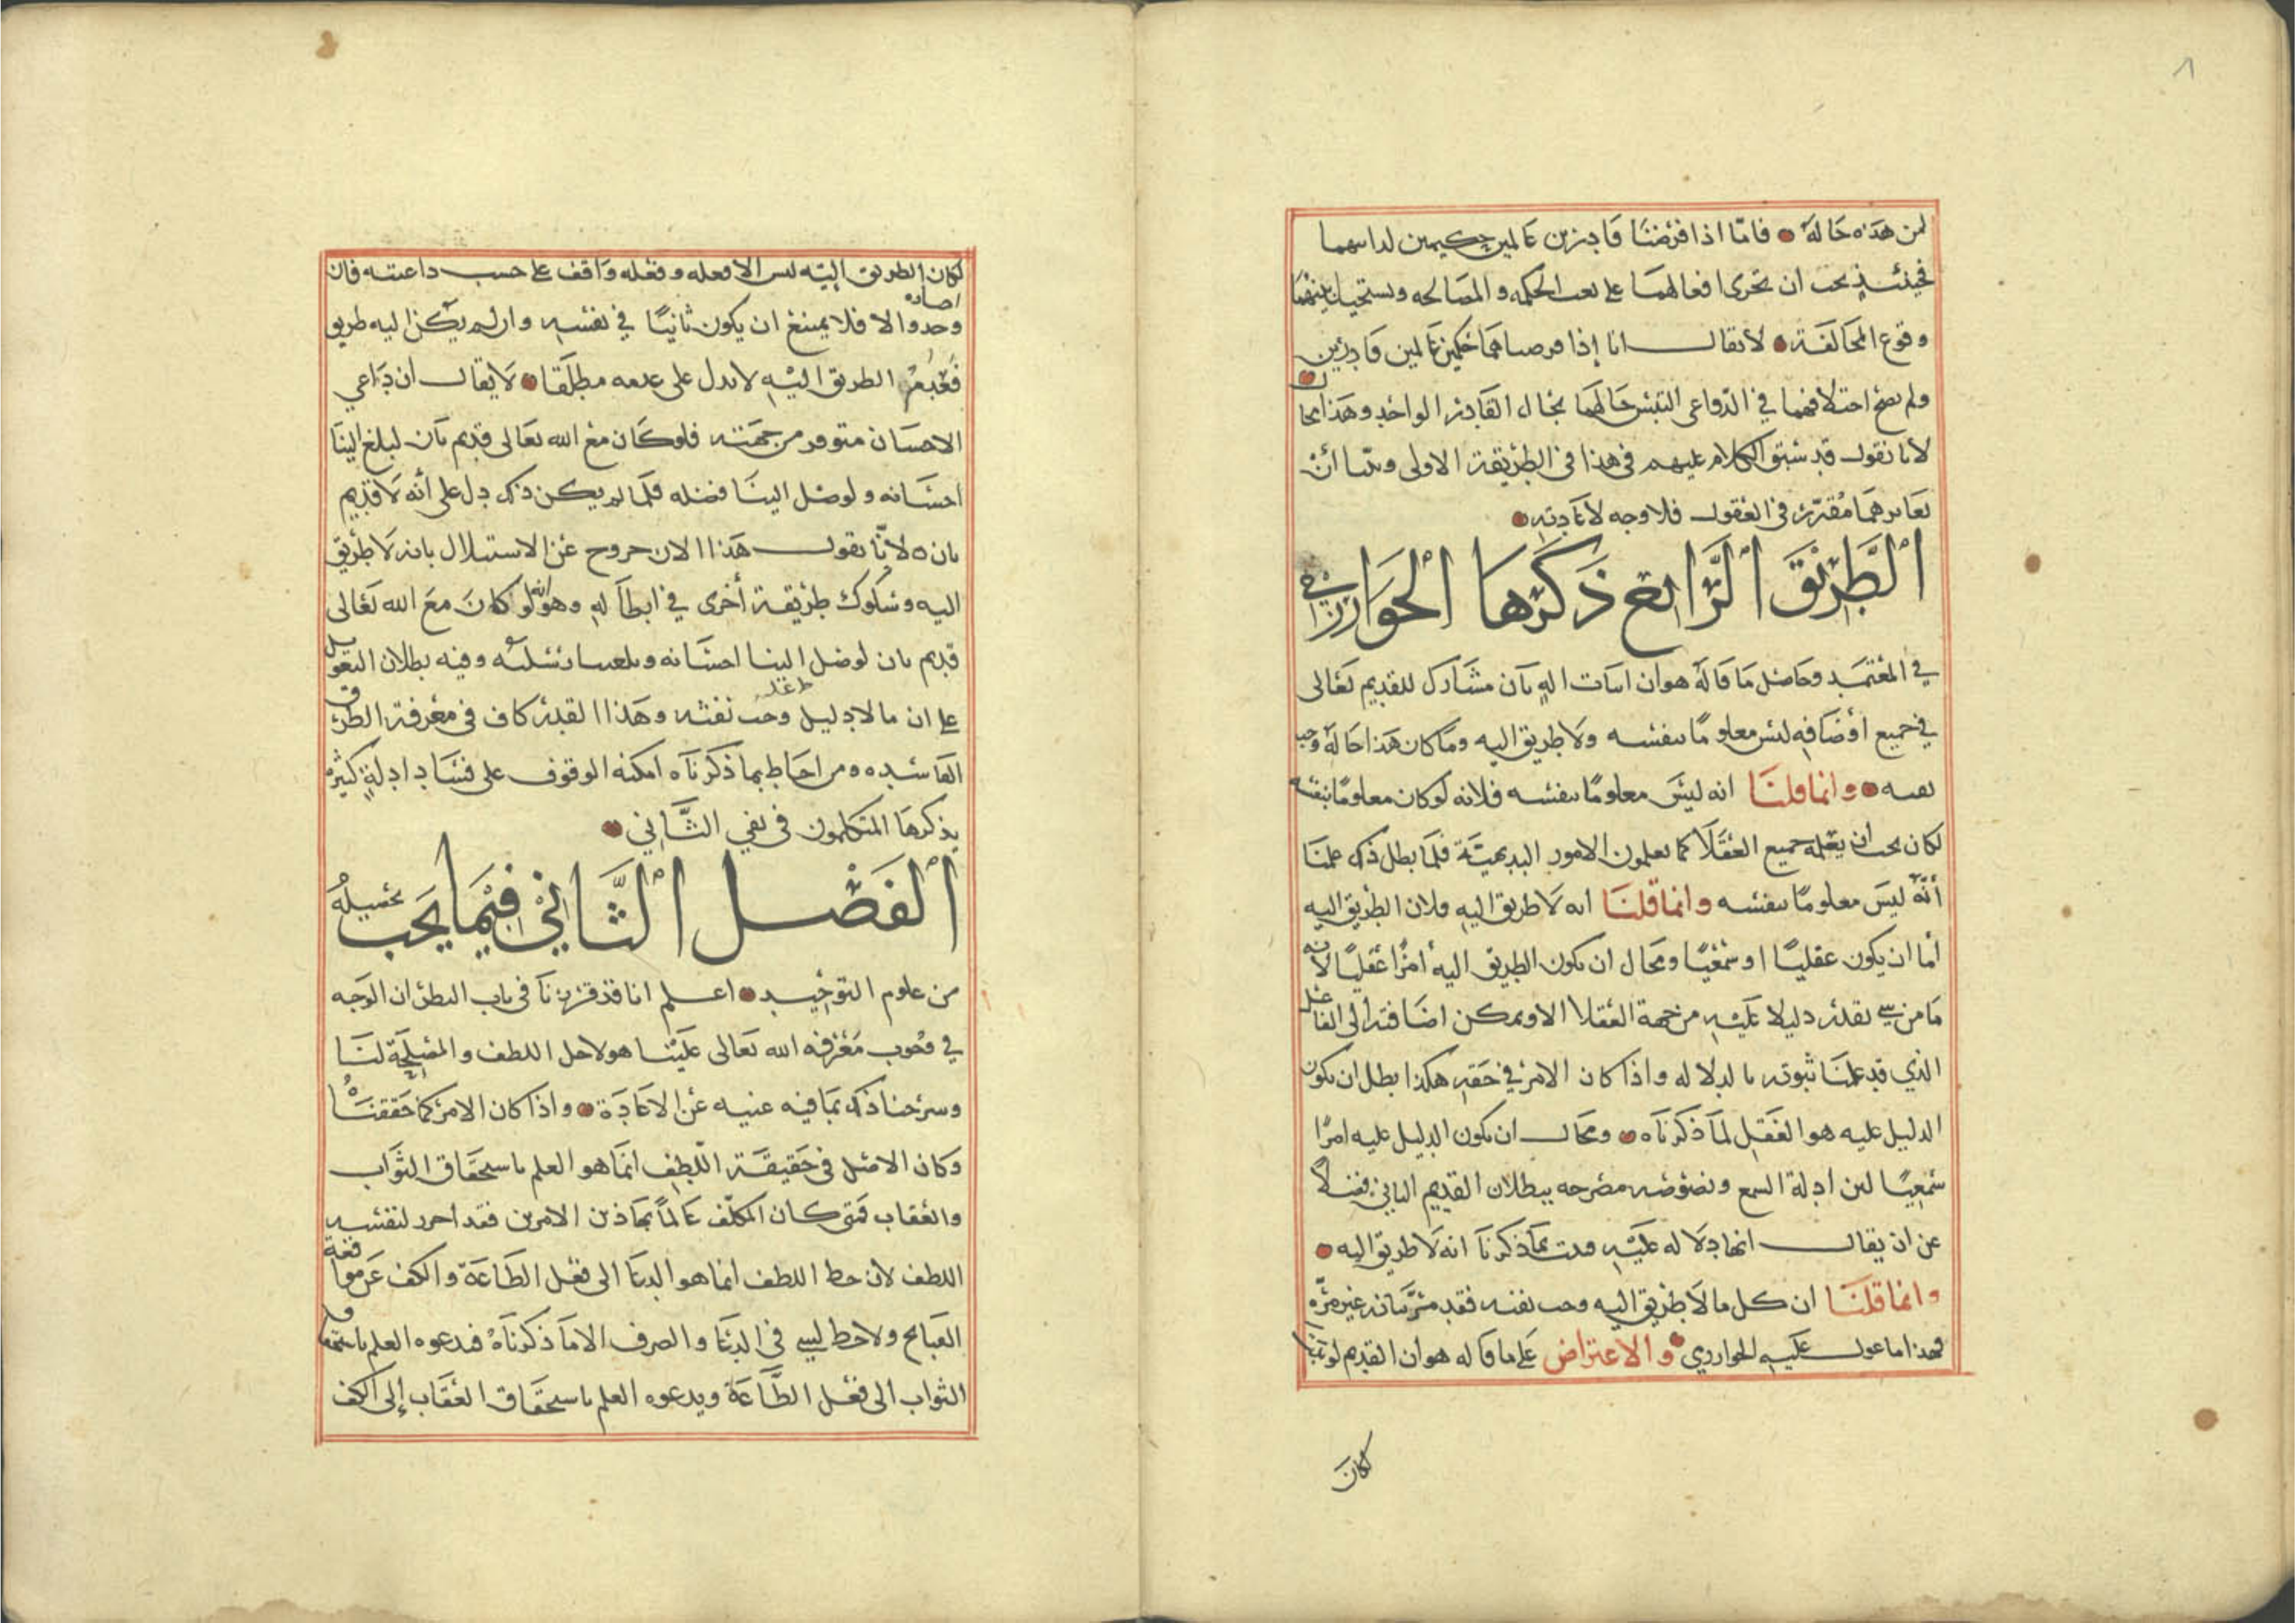 لمن هذه حاله فامّا اذا فرضنا قادرين عالمين حكيمين لداتهما
فحينئذ يجب ان تجرى افعالهما على نعت الحكمه والمصالحه ويستحيل بينهما
وقوع المخالفة لا يقال انا إذا فرضناهما حكيمين عالمين قادرين
ولم يصح اختلافهما في الدّواعى التبس حالهما بحال القادر الواحد وهذا محال
لانا نقول قد سبق الكلام عليهم في هذا في الطريقة الاولى وبيّنا أن
تغايرهما مُقرّر في العقول فلا وجه لاعادته
الطَّرِيقَ الرَّابع ذَكَرَها الخوارزمي
في المعتمد وحاصل ما قاله هو ان اثبات اله ثان مشارك للقديم تعالى
في جميع أوصافه ليس معلومًا بنفسه ولا طريق اليه وما كان هذا حاله وجب
نفيه وانما قلنا انه ليس معلومًا بنفسه فلانه لو كان معلومًا بنفسه
لكان يجب أن يعلمه جميع العقلا كما يعلمون الامور البديهيّة فلما بطل ذلك علمنا
أنّه ليس معلومًا بنفسه وانما قلنا انه لا طريق اليه فلان الطريق اليه
أما ان يكون عقليًا او سمعيًا ومحال ان يكون الطريق اليه أمرًا عقليًا لانه
ما من شي نقدر دليلا عليه من جهة العقلا الا ويمكن اضافته الى الفاعل
الذي قد علمنا ثبوته بالدلاله واذا كان الامر في حقه هكذا بطل ان يكون
الدليل عليه هو العقل لما ذكرناه ومحال ان يكون الدليل عليه امرًا
سمعيًا لان ادلة السمع ونصوصه مصرحه ببطلان القديم الثاني فضلًا
عن ان يقال انها دلاله عليه فثبت بما ذكرنا انه لا طريق اليه
وانما قلنا ان كل ما لا طريق اليه وجب نفيه فقد مرّ بيانه غير مرّه
فهذا ما عول عليه الخوارزمي والاعتراض على ما قاله هو أن القديم لو ثبتا
كان
لكان الطريق اليه ليس الا فعله وفعله واقف على حسب داعيته فان
احسانه
وجد والا فلا يمتنع ان يكون ثانيًا في نفسه وان لم يكن اليه طريق
فعدم الطريق اليه لا يدل على عدمه مطلقا لا يقال أن داعي
الاحسان متوفر من جهته فلو كان مع الله تعالى قديم ثان لبلغ الينا
احسانه ولوصل الينا فضله فلما لم يكن ذلك دل على أنه لا قديم
ثان لانّا نقول هذا الان خروج عن الاستدلال بانه لا طريق
اليه وسلوك طريقة أخرى في ابطاله وهو انه لو كان مع الله تعالى
قديم ثان لوصل الينا احسانه وبلغنا رسله وفيه بطلان التعويل
على ان ما لا دليل عليه وجب نفيه وهذا القدر كاف في معرفة الطرق
الفاسده ومن احاط بما ذكرناه امكنه الوقوف على فساد ادلةٍ كثيرة
يذكرها المتكلمون في نفي الثَّاني
الفَصْل الثَّاني فِيمَا يَجب تحصيلهُ
من علوم التوحيد اعلم انا قد قررنا في باب النظر ان الوجه
في وجوب معرفة الله تعالى علينا هو لاجل اللطف والمصلحة لنا
وشرحنا ذلك بما فيه غنيه عن الاعادة واذا كان الامر كما حققناه
وكان الاصل في حقيقة اللطف انما هو العلم باستحقاق الثواب
والعقاب فمتى كان المكلف عالماً بهاذين الامرين فقد احرز لنفسه
اللطف لان حظ اللطف انما هو الدعا الى فعل الطاعة والكف عن مواقعة
القبايح ولا حظ لشي في الدعا والصرف الا ما ذكرناه فيدعوه العلم باستحقاق
الثواب الى فعل الطَّاعة ويدعوه العلم باستحقاق العقاب إلى الكف